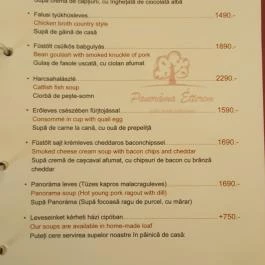 Supă cremă de căpșuni, cu înghețată de ciocolată albă
• Falusi tyúkhúsleves 1490.-
Chicken broth country style
Supă de păină de casă
• Füstölt csülkös babgulyás 1890.-
Bean goulash with smoked knuckle of pork
Gulaș de fasole uscată, cu ciolan afumat
• Harcsahalászlé 2290.-
Catfish fish soup
Ciorbă de pește-somn
Panoráma Étterem
• Erőleves csészében fürjtojással 1590.-
Consommé in cup with quail egg
Supă de carne la cană, cu ouă de prepeliță
• Füstölt sajt krémleves cheddaros baconchipssel 1690.-
Smoked cheese cream soup with bacon chips and cheddar
Supă cremă de cașcaval afumat, cu chipsuri de bacon cu brânză
cheddar
• Panoráma leves (Tüzes kapros malacraguleves) 1690.-
Panorama soup (Hot young pork ragout with dill)
Supă Panoráma (Supă focoasă ragu de purcel, cu mărar)
• Leveseinket kérheti házi cipóban +750.-
Our soups are available in home-made loaf
Puteți cere servirea supelor noastre în păinică de casă: